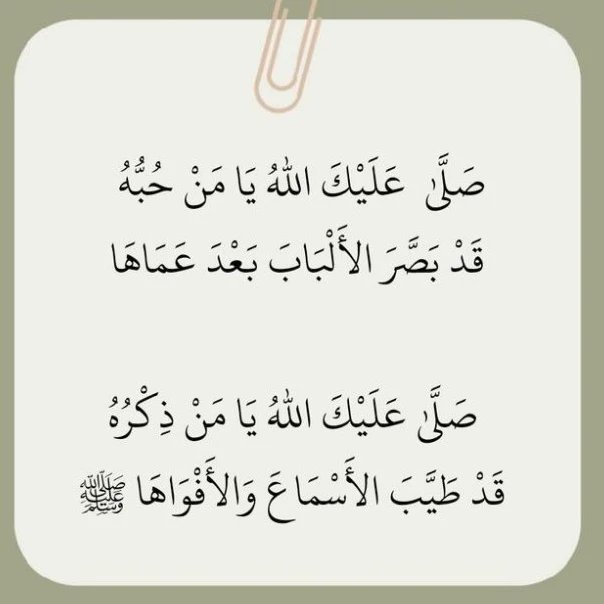 صَلَّىٰ عَلَيْكَ اللهُ يَا مَنْ حُبُّهُ
قَدْ بَصَّرَ الأَلْبَابَ بَعْدَ عَمَاهَا
صَلَّىٰ عَلَيْكَ اللهُ يَا مَنْ ذِكْرُهُ
قَدْ طَيَّبَ الأَسْمَاعَ وَالأَفْوَاهَا ﷺ